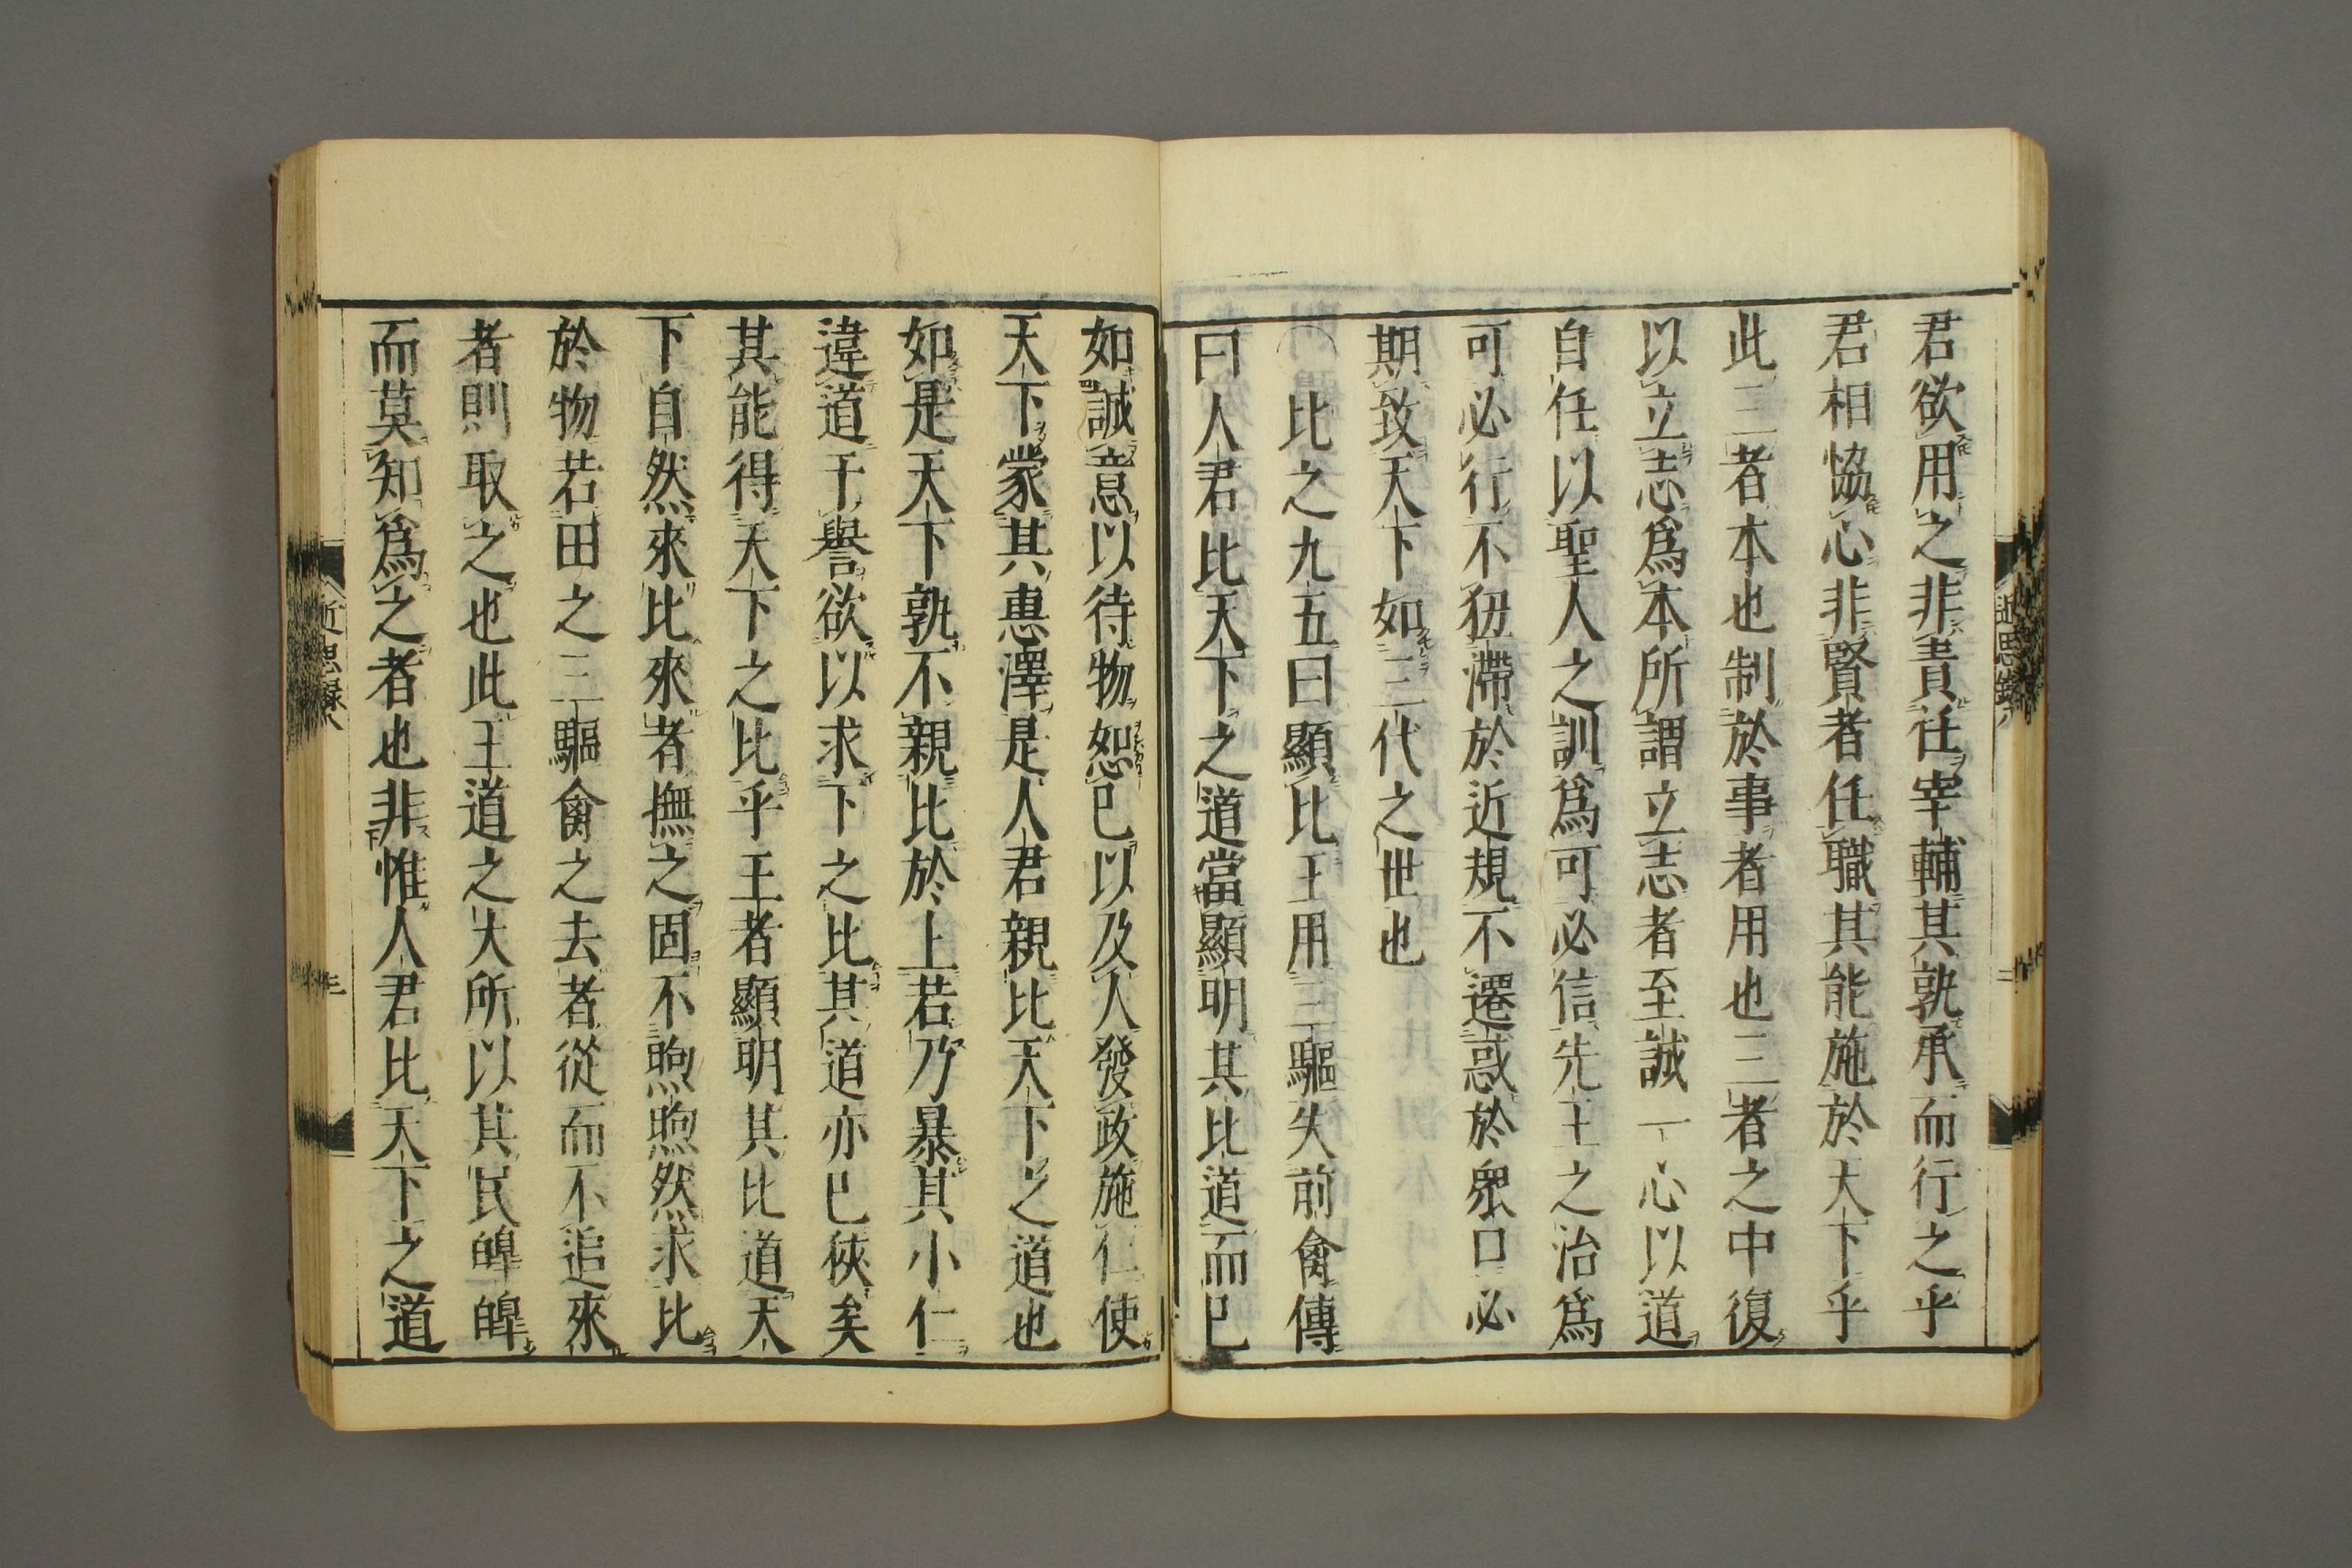 君欲用之非責任宰輔其孰承而行之乎
君相恊心非賢者任職其能施於天下乎
此三者本也制於事者用也三者之中復
以立志爲本所謂立志者至誠一心以道
自任以聖人之訓爲可必信先王之治爲
可必行不狃滯於近規不遷惑於衆口必
期致天下如三代之世也
比之九五曰顯比王用三驅失前禽傳
曰人君比天下之道當顯明其比道而已
如誠意以待物恕已以及人發政施仁使
天下蒙其惠澤是人君親比天下之道也
如是天下孰不親比於上若乃暴其小仁
違道干譽欲以求下之比其道亦已狹矣
其能得天下之比乎王者顯明其比道天
下自然來比來者撫之固不煦煦然求比
於物若田之三驅禽之去者從而不追來
者則取之也此王道之大所以其民皥皥
而莫知爲之者也非惟人君比天下之道
近思錄八